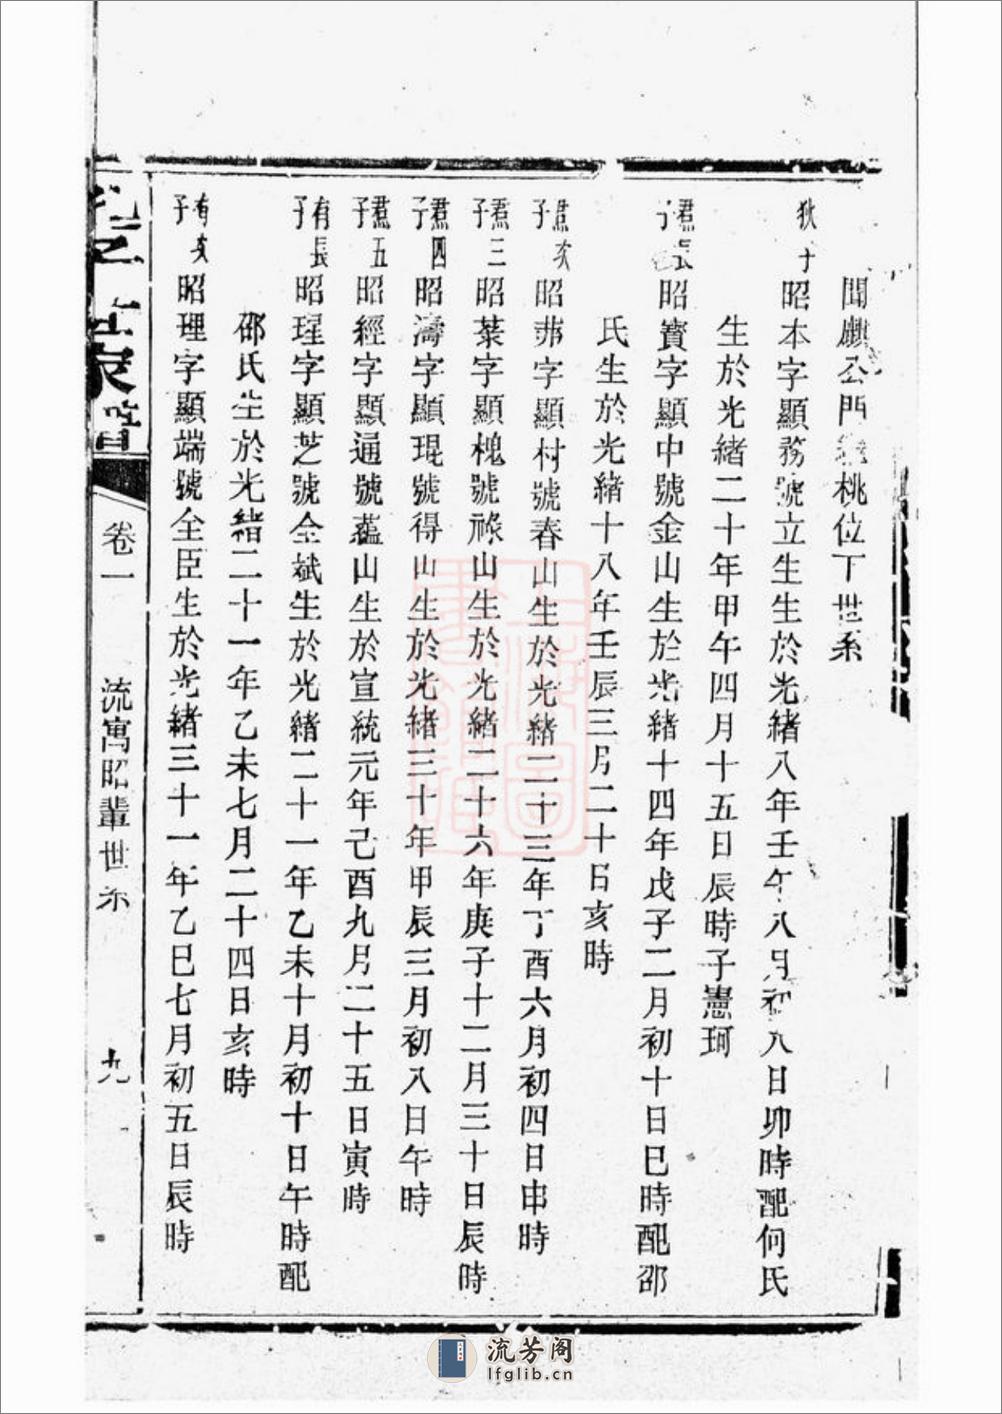 聞麒公門祧位下世系
狄子 昭本字顯務號立生生於光緒八年壬午八月初八日卯時配何氏
生於光緒二十年甲午四月十五日辰時子憲珂
君長子 昭寶字顯中號金山生於光緒十四年戊子二月初十日巳時配邵
氏生於光緒十八年壬辰三月二十日亥時
君次子 昭茀字顯村號春山生於光緒二十三年丁酉六月初四日申時
君三子 昭棻字顯槐號祿山生於光緒二十六年庚子十二月三十日辰時
君四子 昭濤字顯琨號得山生於光緒三十年甲辰三月初八日午時
君五子 昭經字顯通號蘊山生於宣統元年己酉九月二十五日寅時
有長子 昭瑆字顯芝號全斌生於光緒二十一年乙未十月初十日午時配
邵氏生於光緒二十一年乙未七月二十四日亥時
有次子 昭理字顯端號全臣生於光緒三十一年乙巳七月初五日辰時
卷一 流寓昭輩世系 九
流芳阁
lfglib.cn